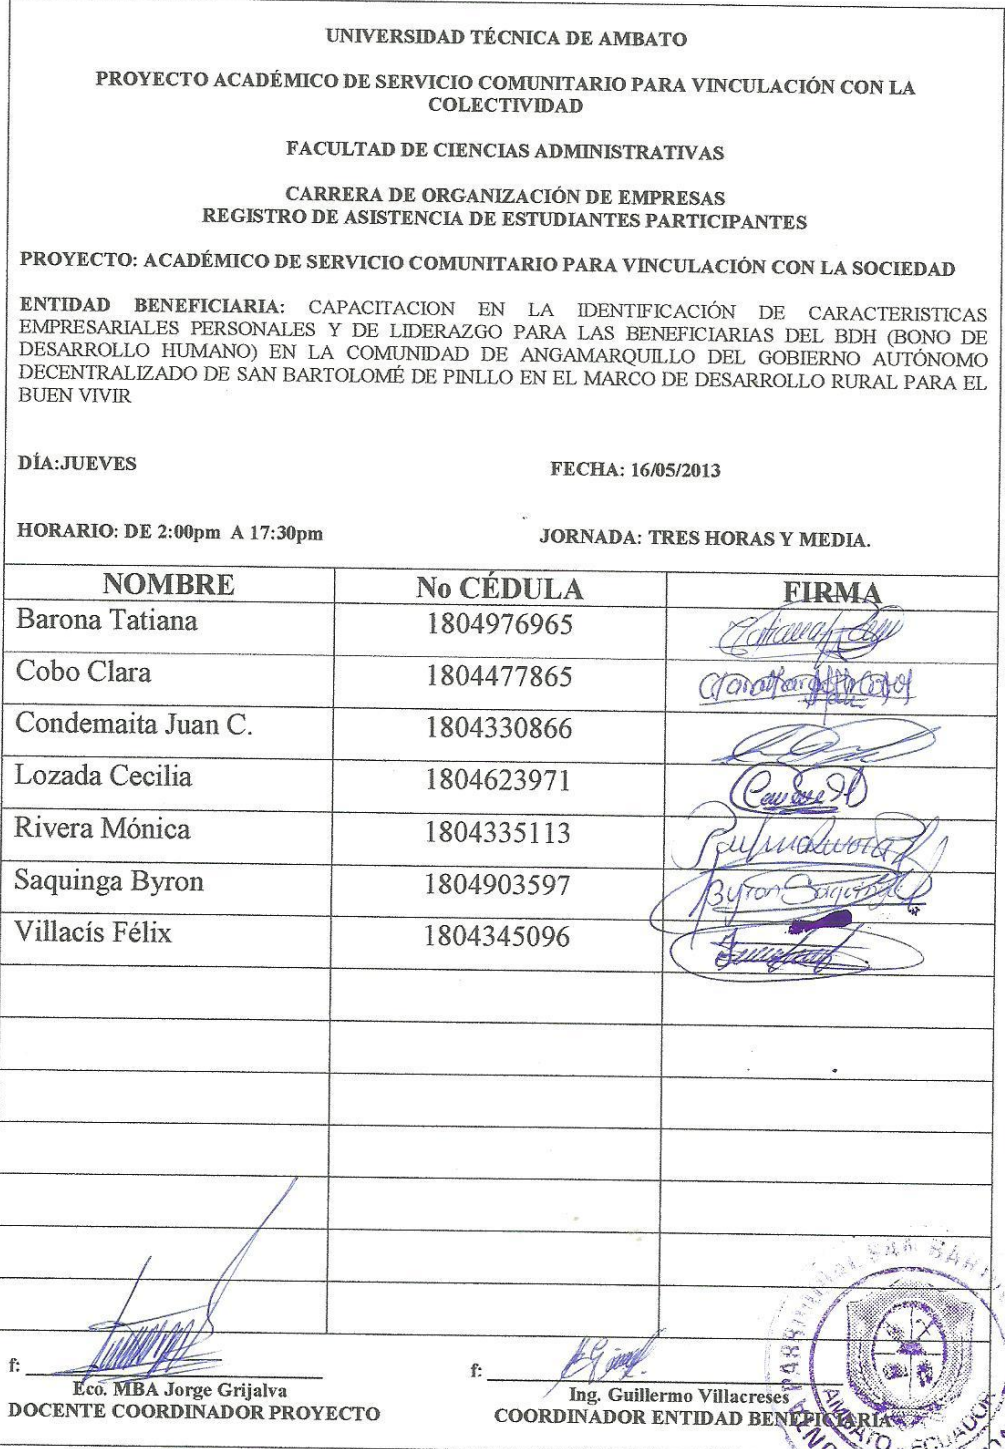 UNIVERSIDAD TÉCNICA DE AMBATO
PROYECTO ACADÉMICO DE SERVICIO COMUNITARIO PARA VINCULACIÓN CON LA
COLECTIVIDAD
FACULTAD DE CIENCIAS ADMINISTRATIVAS
CARRERA DE ORGANIZACIÓN DE EMPRESAS
REGISTRO DE ASISTENCIA DE ESTUDIANTES PARTICIPANTES
PROYECTO: ACADÉMICO DE SERVICIO COMUNITARIO PARA VINCULACIÓN CON LA SOCIEDAD
ENTIDAD BENEFICIARIA: CAPACITACION EN LA IDENTIFICACIÓN DE CARACTERISTICAS
EMPRESARIALES PERSONALES Y DE LIDERAZGO PARA LAS BENEFICIARIAS DEL BDH (BONO DE
DESARROLLO HUMANO) EN LA COMUNIDAD DE ANGAMARQUILLO DEL GOBIERNO AUTÓNOMO
DECENTRALIZADO DE SAN BARTOLOMÉ DE PINLLO EN EL MARCO DE DESARROLLO RURAL PARA EL
BUEN VIVIR
DÍA:JUEVES FECHA: 16/05/2013
HORARIO: DE 2:00pm A 17:30pm JORNADA: TRES HORAS Y MEDIA.
NOMBRE No CÉDULA FIRMA
Barona Tatiana 1804976965
Cobo Clara 1804477865
Condemaita Juan C. 1804330866
Lozada Cecilia 1804623971
Rivera Mónica 1804335113
Saquinga Byron 1804903597 Byron Saquinga
Villacís Félix 1804345096
f: f:
Eco. MBA Jorge Grijalva Ing. Guillermo Villacreses
DOCENTE COORDINADOR PROYECTO COORDINADOR ENTIDAD BENEFICIARIA
PARROQUIAL SAN
AMBATO - ECUADOR